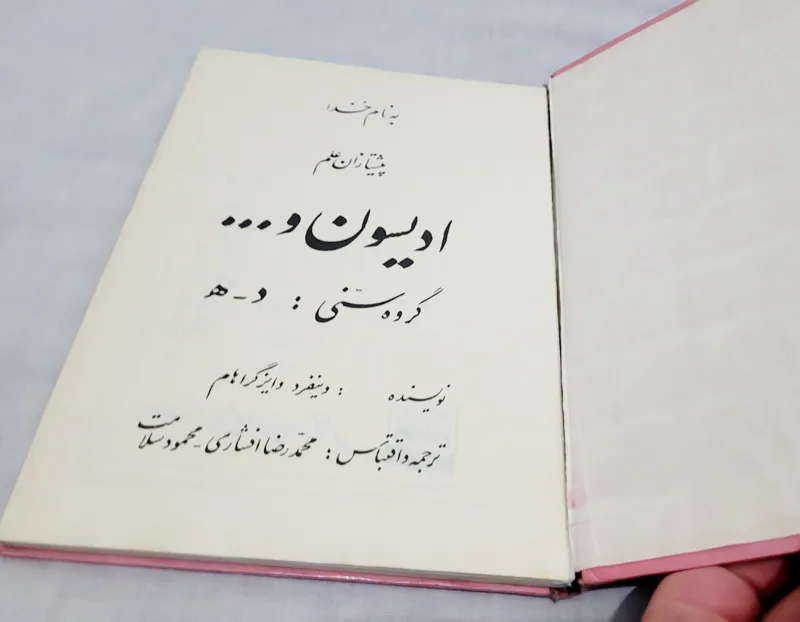 به نام خدا
پیشتازان علم
ادیسون و...
گروه سنّی : د - ه
نویسنده : وینفرد وایزگراهام
ترجمه و اقتباس : محمّدرضا افشاری - محمود سلامت